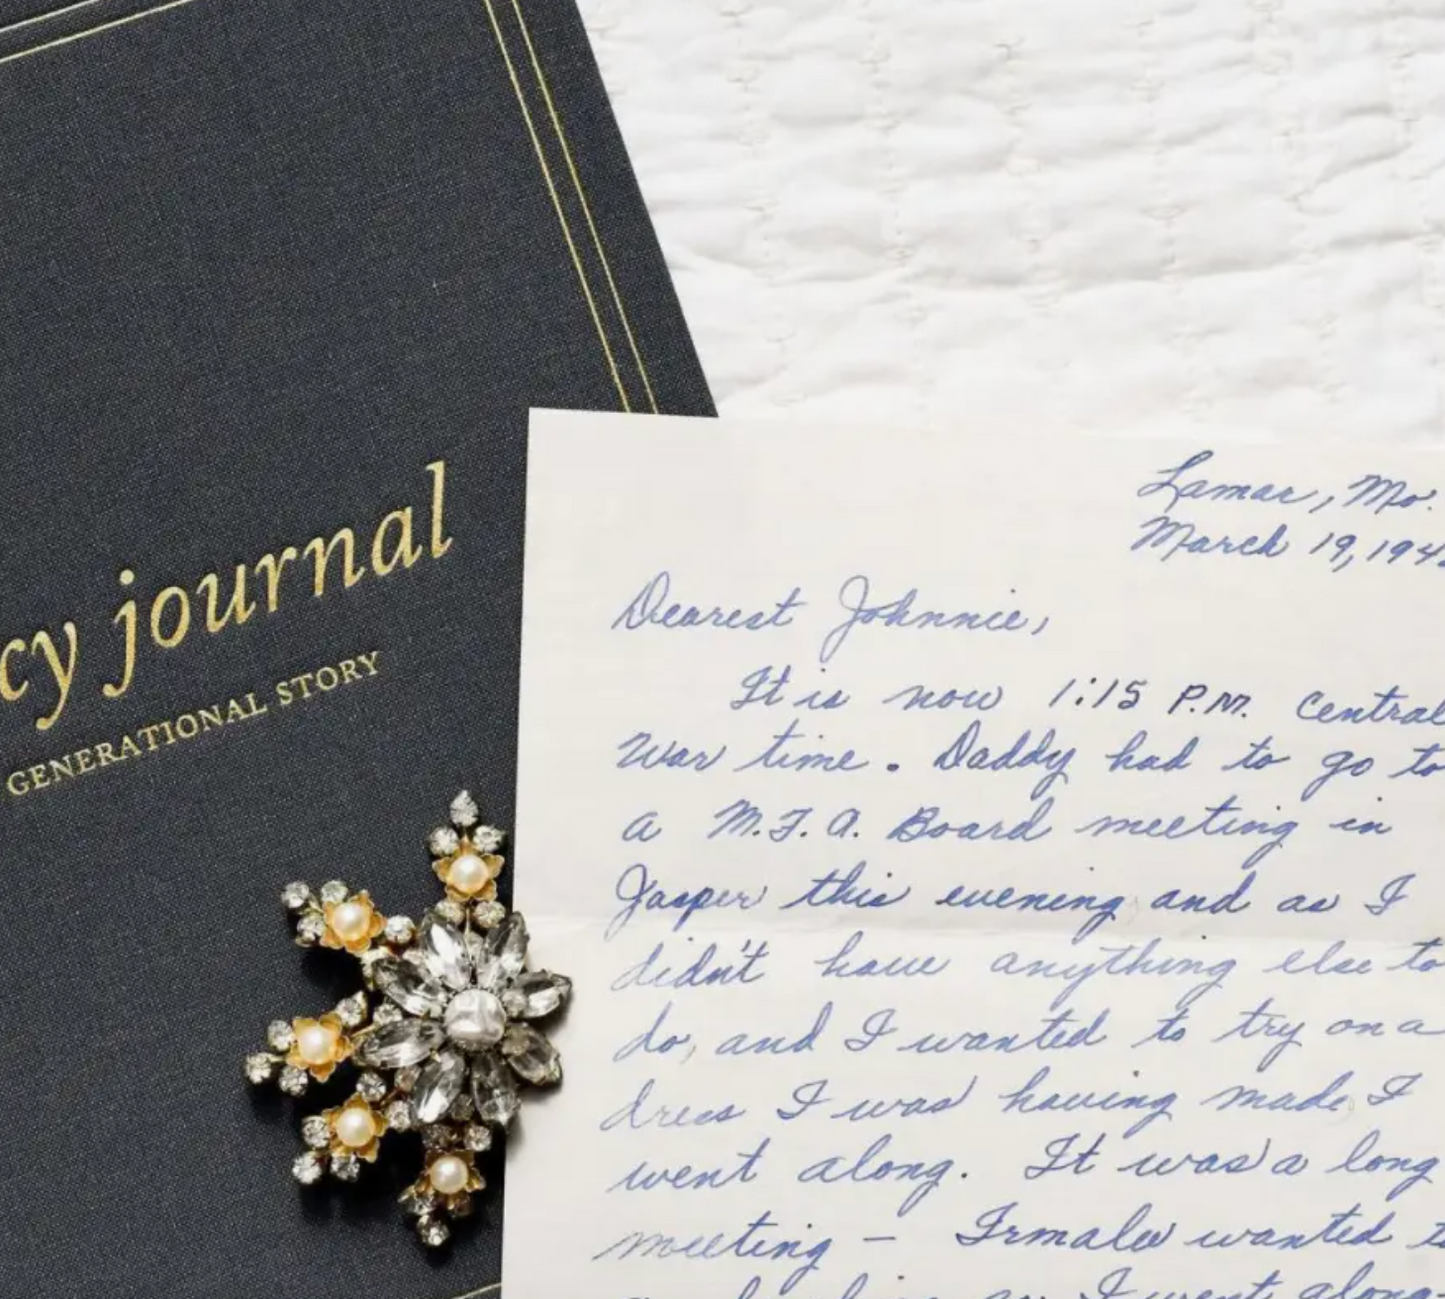 cy journal
GENERATIONAL STORY
Lamar, Mo.
March 19, 194
Dearest Johnnie,
It is now 1:15 P.M. Central
War time. Daddy had to go to
a M.F.A. Board meeting in
Jasper this evening and as I
didn't have anything else to
do, and I wanted to try on a
dress I was having made I
went along. It was a long
meeting — Irmalee wanted to
so I went along-